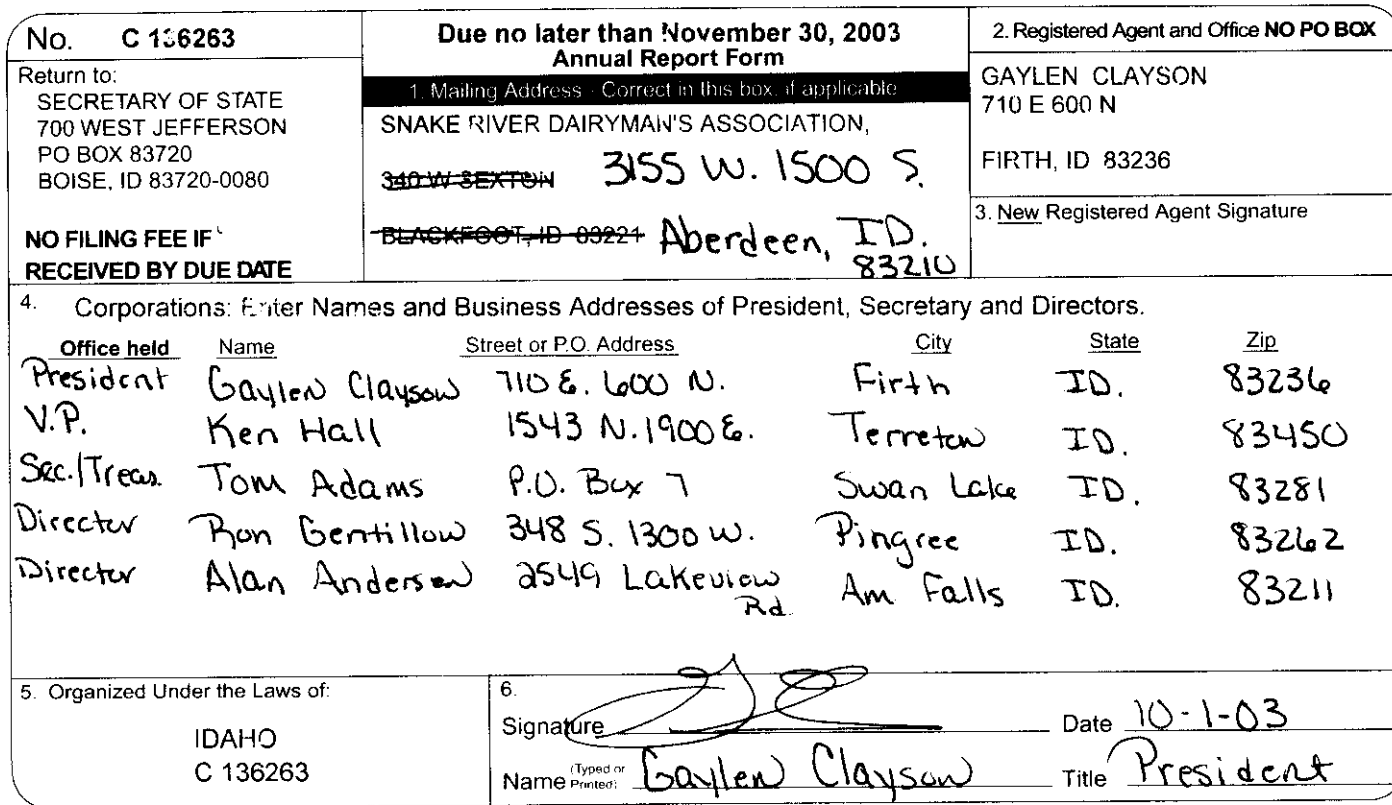 No. C 136263
Return to:
SECRETARY OF STATE
700 WEST JEFFERSON
PO BOX 83720
BOISE, ID 83720-0080
NO FILING FEE IF
RECEIVED BY DUE DATE
Due no later than November 30, 2003
Annual Report Form
1. Mailing Address - Correct in this box, if applicable
SNAKE RIVER DAIRYMAN'S ASSOCIATION,
340 W SEXTON 3155 W. 1500 S.
BLACKFOOT, ID 83221 Aberdeen, ID.
83210
2. Registered Agent and Office NO PO BOX
GAYLEN CLAYSON
710 E 600 N
FIRTH, ID 83236
3. New Registered Agent Signature
4. Corporations: Enter Names and Business Addresses of President, Secretary and Directors.
Office held Name Street or P.O. Address City State Zip
President Gaylen Clayson 710 E. 600 N. Firth ID. 83236
V.P. Ken Hall 1543 N. 1900 E. Terreton ID. 83450
Sec./Treas. Tom Adams P.O. Box 7 Swan Lake ID. 83281
Director Ron Gentillow 348 S. 1300 W. Pingree ID. 83262
Director Alan Andersen 2549 Lakeview Am Falls ID. 83211
Rd
5. Organized Under the Laws of:
IDAHO
C 136263
6.
Signature Date 10-1-03
Name (Typed or Printed) Gaylen Clayson Title President